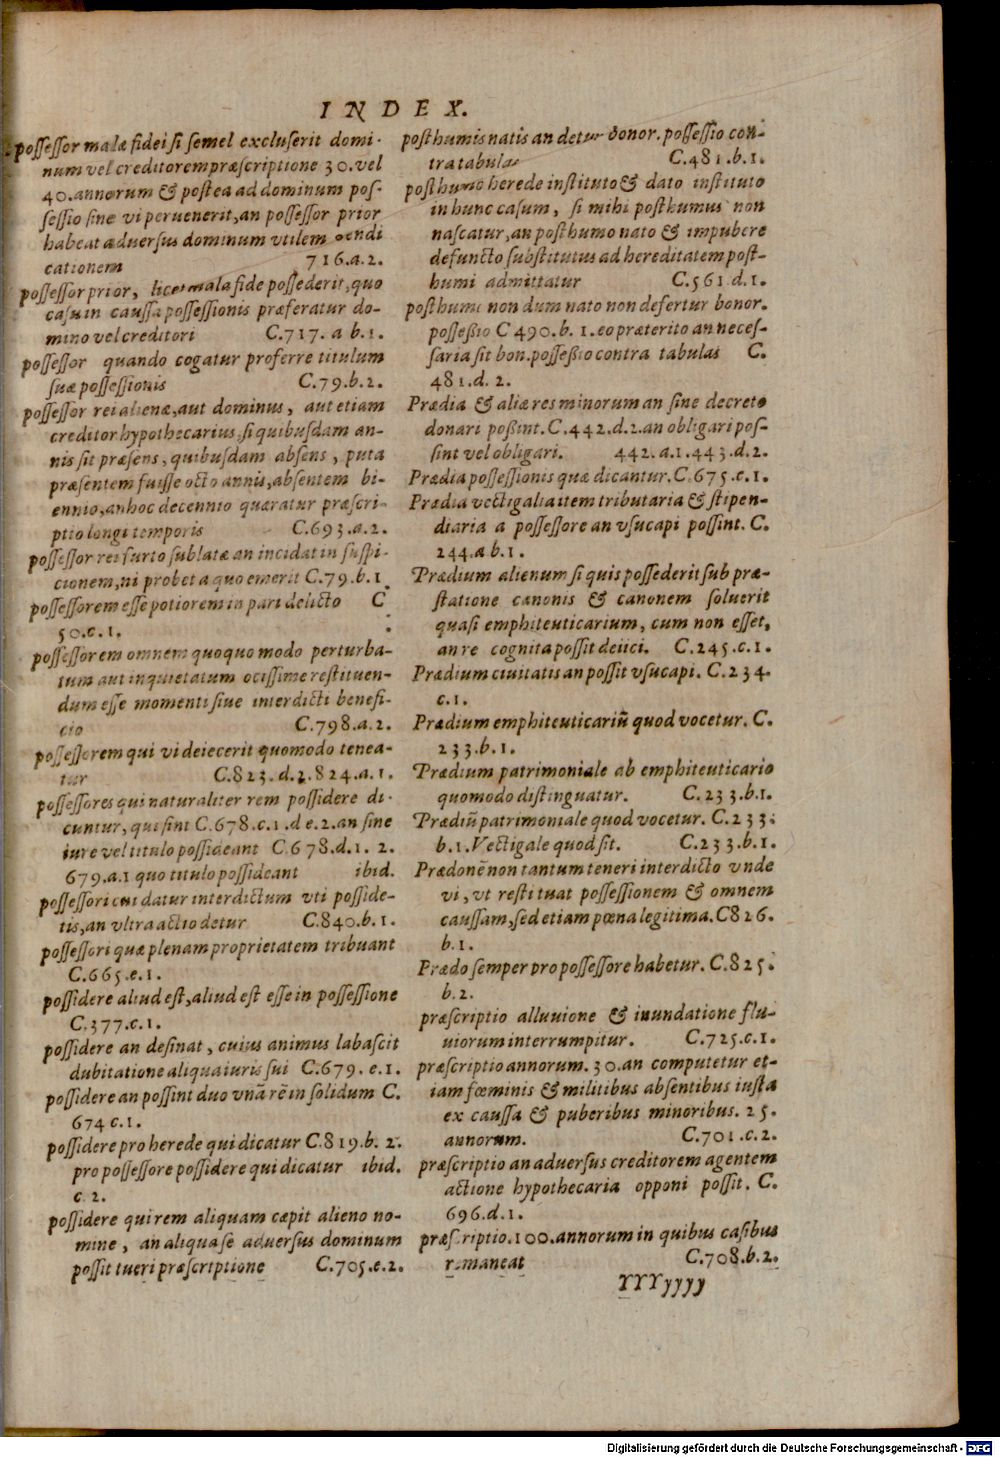 INDEX.
possessor malæ fidei si semel excluserit domi-
num vel creditorem præscriptione 30. vel
40. annorum & postea ad dominum pos-
sessio sine vi peruenerit, an possessor prior
habeat aduersus dominum vtilem vendi
cationem 716.a.2.
possessor prior, licet mala fide possederit, quo
casu in caussa possessionis præferatur do-
mino vel creditori C.717. a b.1.
possessor quando cogatur proferre titulum
suæ possessionis C.79.b.2.
possessor rei alienæ, aut dominus, aut etiam
creditor hypothecarius, si quibusdam an-
nis sit præsens, quibusdam absens, puta
præsentem fuisse octo annis, absentem bi-
ennio, an hoc decennio quæratur præscri-
ptio longi temporis C.693.a.2.
possessor rei furto sublatæ an incidat in suspi-
cionem, ni probet a quo emerit C.79.b.1.
possessorem esse potiorem in pari delicto C
50.c.1.
possessorem omnem quoquo modo perturba-
tum aut inquietatum ocissime restituen-
dum esse momenti siue interdicti benefi-
cio C.798.a.2.
possessorem qui vi deiecerit quomodo tenea-
tur C.823.d.2.824.a.1.
possessores qui naturaliter rem possidere di-
cuntur, qui sint C.678.c.1.d e.2.an sine
iure vel titulo possideant C.678.d.1. 2.
679.a.1 quo titulo possideant ibid.
possessori cui datur interdictum vti posside-
tis, an vltra actio detur C.840.b.1.
possessori quæ plenam proprietatem tribuant
C.665.e.1.
possidere aliud est, aliud est esse in possessione
C.377.c.1.
possidere an desinat, cuius animus labascit
dubitatione aliqua iuris sui C.679. e.1.
possidere an possint duo vnā rē in solidum C.
674 c.1.
possidere pro herede qui dicatur C.819.b. 2.
pro possessore possidere qui dicatur ibid.
c 2.
possidere qui rem aliquam cœpit alieno no-
mine, an aliqua se aduersus dominum
possit tueri præscriptione C.705.e.2.
posthumis natis an detur bonor. possessio con-
tra tabulas C.481.b.1.
posthumo herede instituto & dato instituto
in hunc casum, si mihi posthumus non
nascatur, an posthumo nato & impubere
defuncto substitutus ad hereditatem post-
humi admittatur C.561.d.1.
posthumo non dum nato non defertur bonor.
possessio C 490.b. 1. eo præterito an neces-
saria sit bon. possessio contra tabulas C.
481.d. 2.
Prædia & aliæ res minorum an sine decreto
donari possint. C.442.d.2.an obligari pos-
sint vel obligari. 442.a.1.443.d.2.
Prædia possessionis quæ dicantur. C.675.e.1.
Prædia vectigalia item tributaria & stipen-
diaria a possessore an vsucapi possint. C.
244.a b.1.
Prædium alienum si quis possederit sub præ-
statione canonis & canonem soluerit
quasi emphiteuticarium, cum non esset,
an re cognita possit deiici. C.245.c.1.
Prædium ciuitatis an possit vsucapi. C.234.
c.1.
Prædium emphiteuticariū quod vocetur. C.
233.b.1.
Prædium patrimoniale ab emphiteuticario
quomodo distinguatur. C.233.b.1.
Prædiū patrimoniale quod vocetur. C.233.
b.1. Vectigale quod sit. C.233.b.1.
Prædonē non tantum teneri interdicto vnde
vi, vt restituat possessionem & omnem
caussam, sed etiam pœna legitima. C826.
b.1.
Prædo semper pro possessore habetur. C.825.
b.2.
præscriptio alluuione & inundatione flu-
uiorum interrumpitur. C.725.c.1.
præscriptio annorum. 30. an computetur et-
iam fœminis & militibus absentibus iusta
ex caussa & puberibus minoribus. 25.
annorum. C.701.c.2.
præscriptio an aduersus creditorem agentem
actione hypothecaria opponi possit. C.
696.d.1.
præscriptio. 100. annorum in quibus casibus
remaneat C.708.b.2.
YYYyyyy
Digitalisierung gefördert durch die Deutsche Forschungsgemeinschaft - DFG